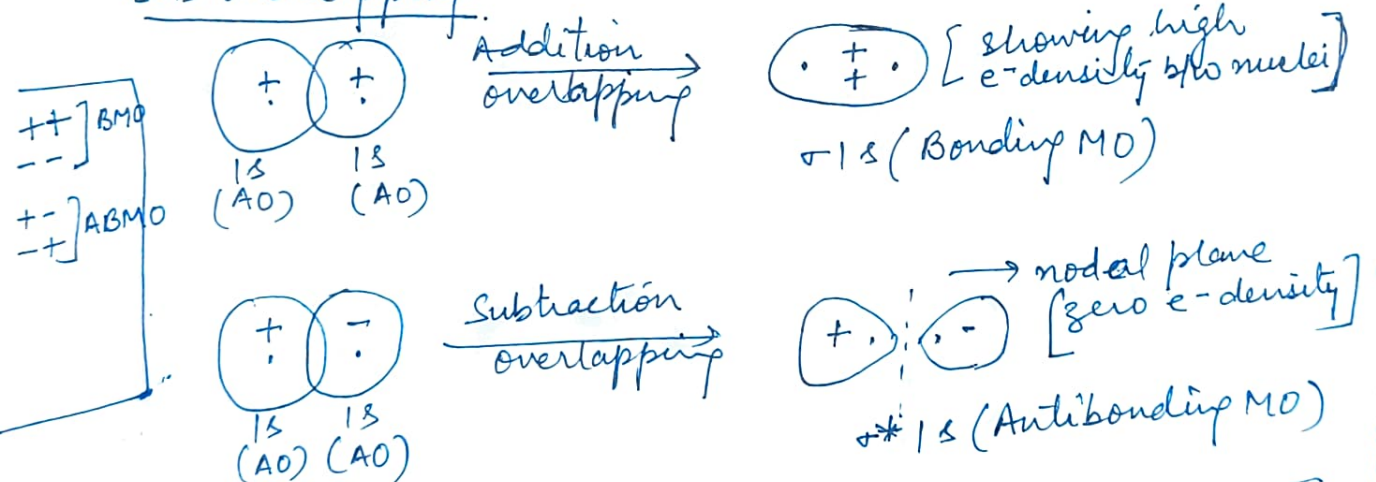 ++ ] BMO
--
+- ] ABMO
-+
+ +
1s 1s
(AO) (AO)
Addition
overlapping
+
+
[showing high
e- density b/w nuclei]
σ1s (Bonding MO)
+ -
1s 1s
(AO) (AO)
Subtraction
overlapping
+ -
→ nodal plane
[zero e- density]
σ*1s (Antibonding MO)